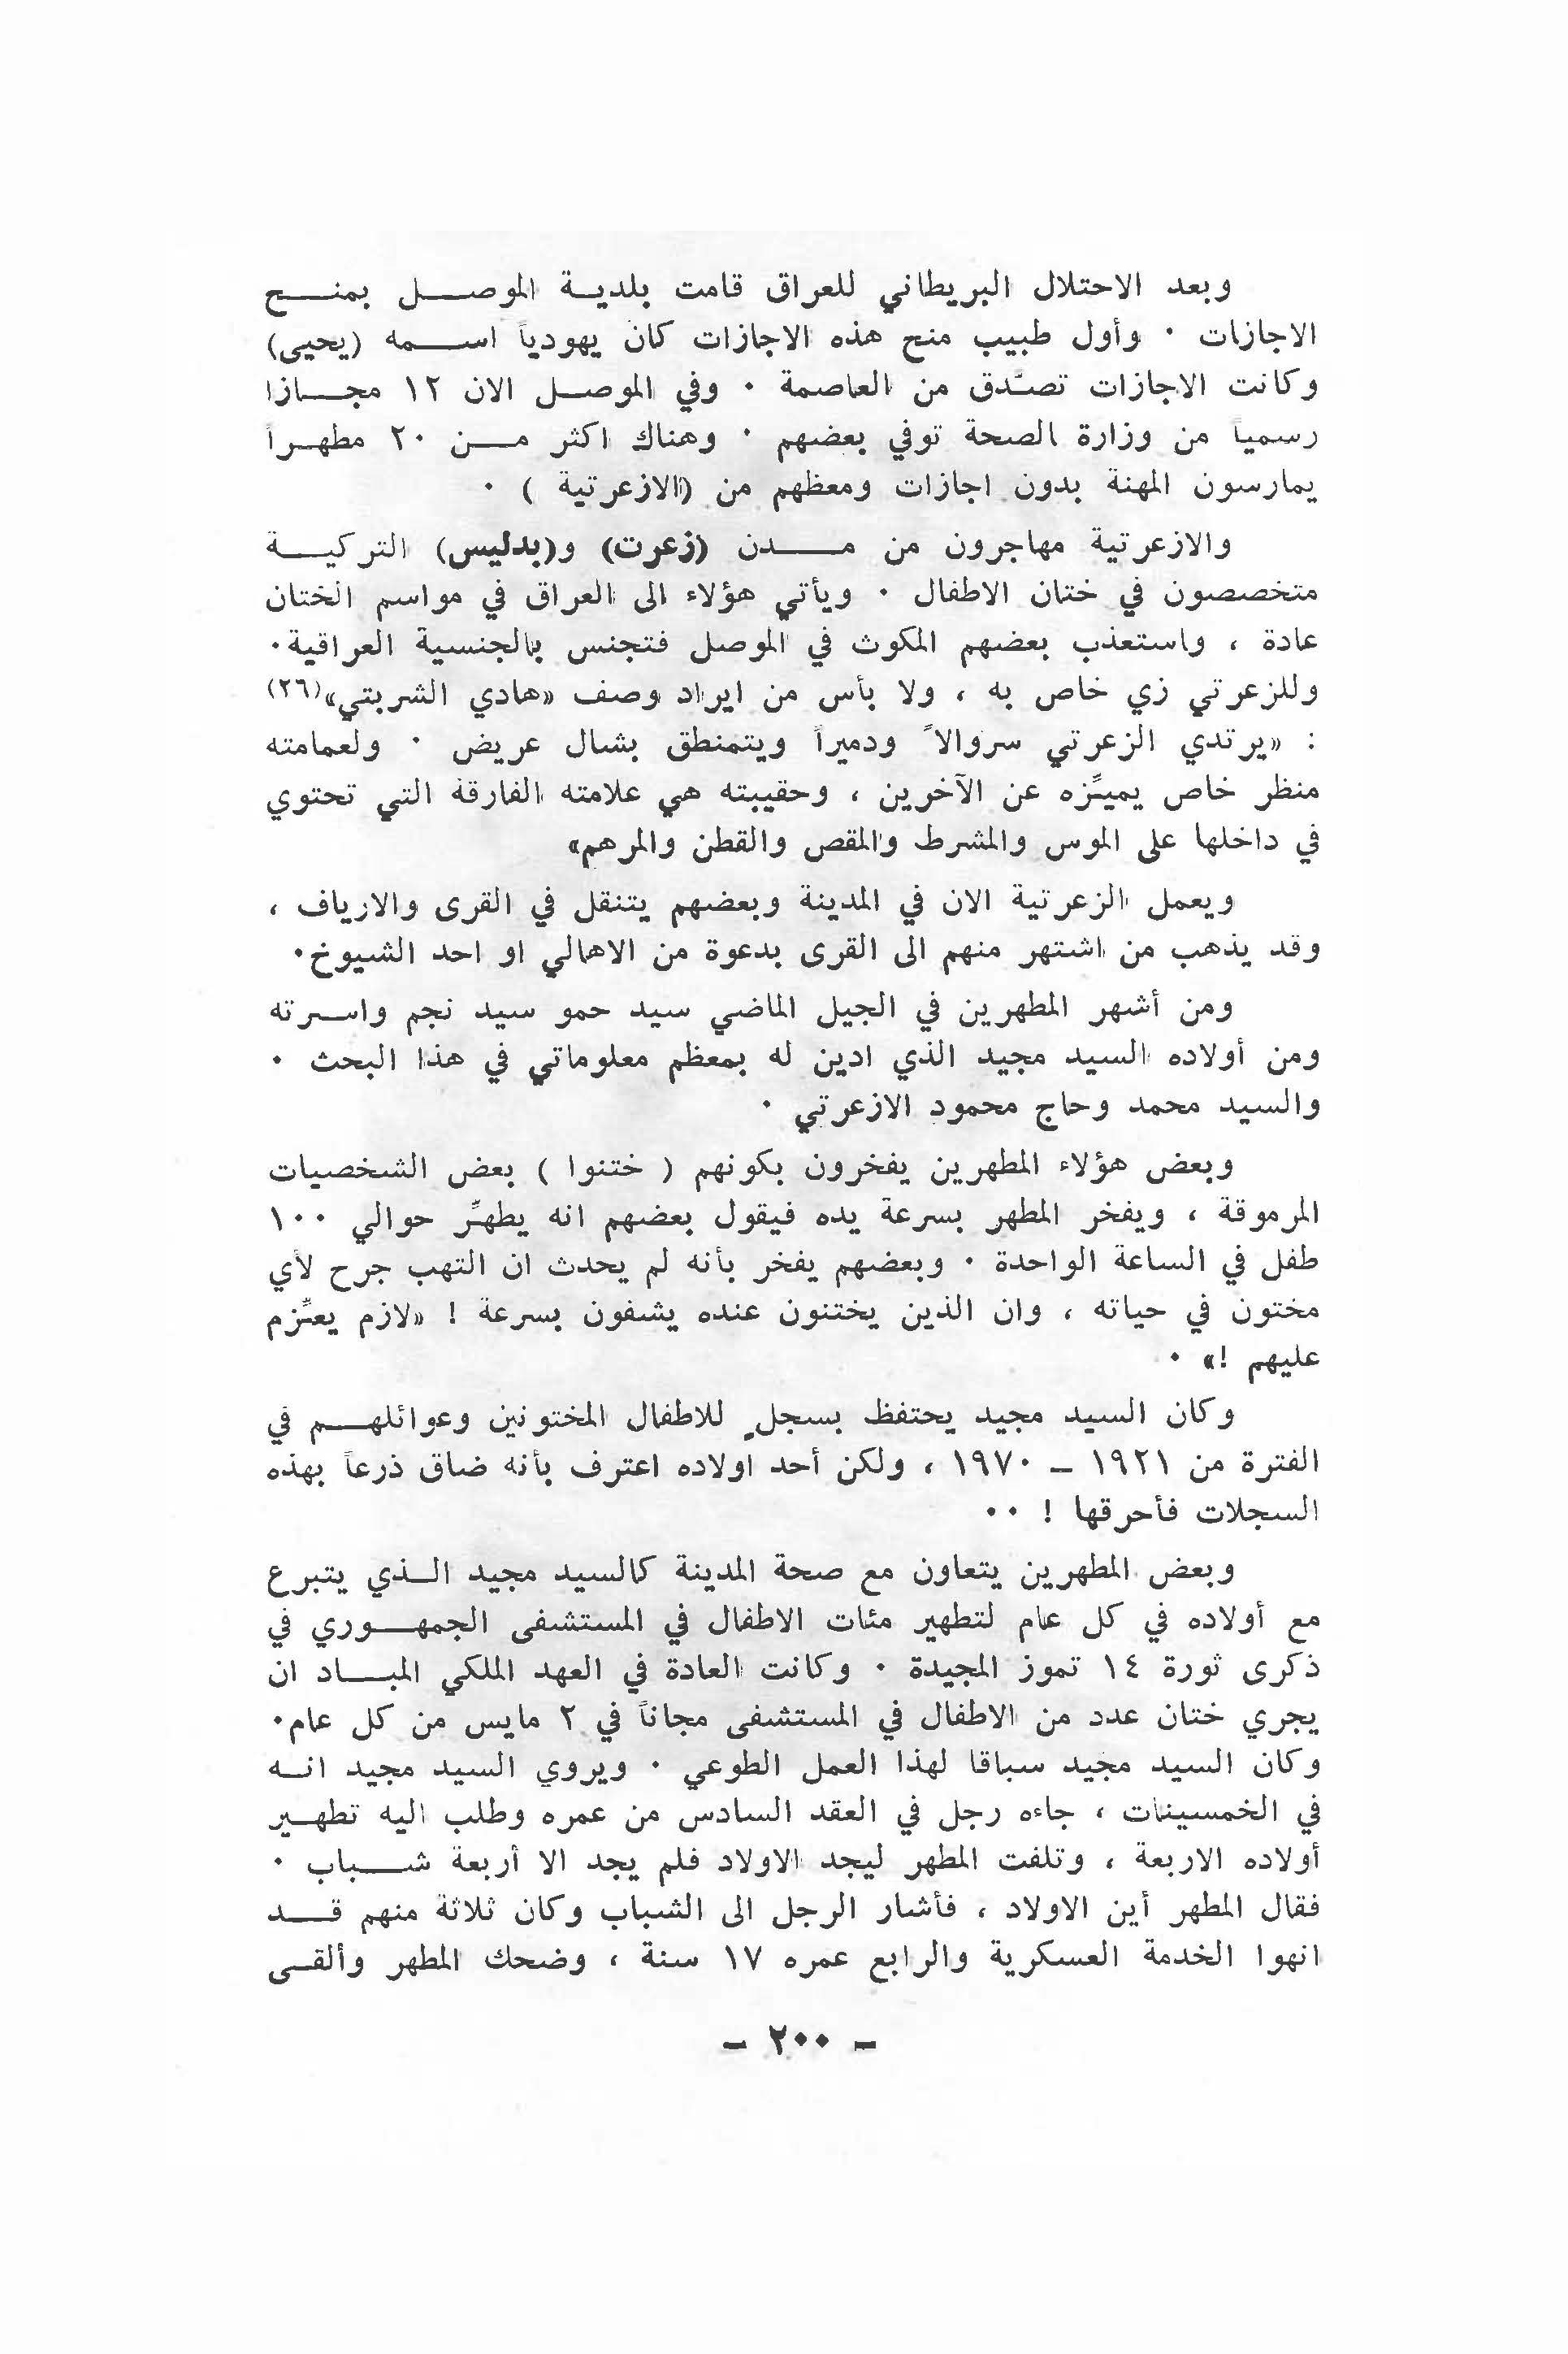 وبعد الاحتلال البريطاني للعراق قامت بلدية الموصل بمنح
الاجازات . وأول طبيب منح هذه الاجازات كان يهودياً اسمه (يحيى)
وكانت الاجازات تصدّق من العاصمة . وفي الموصل الان ١٢ مجازا
رسمياً من وزارة الصحة توفي بعضهم . وهناك اكثر من ٢٠ مطهراً
يمارسون المهنة بدون اجازات ومعظهم من (الازعرتية ) .
والازعرتية مهاجرون من مدن (زعرت) و(بدليس) التركية
متخصصون في ختان الاطفال . ويأتي هؤلاء الى العراق في مواسم الختان
عادة ، واستعذب بعضهم المكوث في الموصل فتجنس بالجنسية العراقية.
وللزعرتي زي خاص به ، ولا بأس من ايراد وصف «هادي الشربتي»(٢٦)
: «يرتدي الزعرتي سروالاً ودميراً ويتمنطق بشال عريض . ولعمامته
منظر خاص يميّزه عن الآخرين ، وحقيبته هي علامته الفارقة التي تحتوي
في داخلها على الموس والمشرط والمقص والقطن والمرهم»
ويعمل الزعرتية الان في المدينة وبعضهم يتنقل في القرى والارياف ،
وقد يذهب من اشتهر منهم الى القرى بدعوة من الاهالي او احد الشيوخ.
ومن أشهر المطهرين في الجيل الماضي سيد حمو سيد نجم واسرته
ومن أولاده السيد مجيد الذي ادين له بمعظم معلوماتي في هذا البحث .
والسيد محمد وحاج محمود الازعرتي .
وبعض هؤلاء المطهرين يفخرون بكونهم ( ختنوا ) بعض الشخصيات
المرموقة ، ويفخر المطهر بسرعة يده فيقول بعضهم انه يطهّر حوالي ١٠٠
طفل في الساعة الواحدة . وبعضهم يفخر بأنه لم يحدث ان التهب جرح لأي
مختون في حياته ، وان الذين يختنون عنده يشفون بسرعة ! «لازم يعزّم
عليهم !» .
وكان السيد مجيد يحتفظ بسجلٍ للاطفال المختونين وعوائلهم في
الفترة من ١٩٢١ ـ ١٩٧٠ ، ولكن أحد اولاده اعترف بأنه ضاق ذرعاً بهذه
السجلات فأحرقها ! ..
وبعض المطهرين يتعاون مع صحة المدينة كالسيد مجيد الذي يتبرع
مع أولاده في كل عام لتطهير مئات الاطفال في المستشفى الجمهوري في
ذكرى ثورة ١٤ تموز المجيدة . وكانت العادة في العهد الملكي المباد ان
يجري ختان عدد من الاطفال في المستشفى مجاناً في ٢ مايس من كل عام.
وكان السيد مجيد سباقا لهذا العمل الطوعي . ويروي السيد مجيد انه
في الخمسينات ، جاءه رجل في العقد السادس من عمره وطلب اليه تطهير
أولاده الاربعة ، وتلفت المطهر ليجد الاولاد فلم يجد الا أربعة شباب .
فقال المطهر أين الاولاد ، فأشار الرجل الى الشباب وكان ثلاثة منهم قد
انهوا الخدمة العسكرية والرابع عمره ١٧ سنة ، وضحك المطهر وألقى
ـ ٢٠٠ ـ